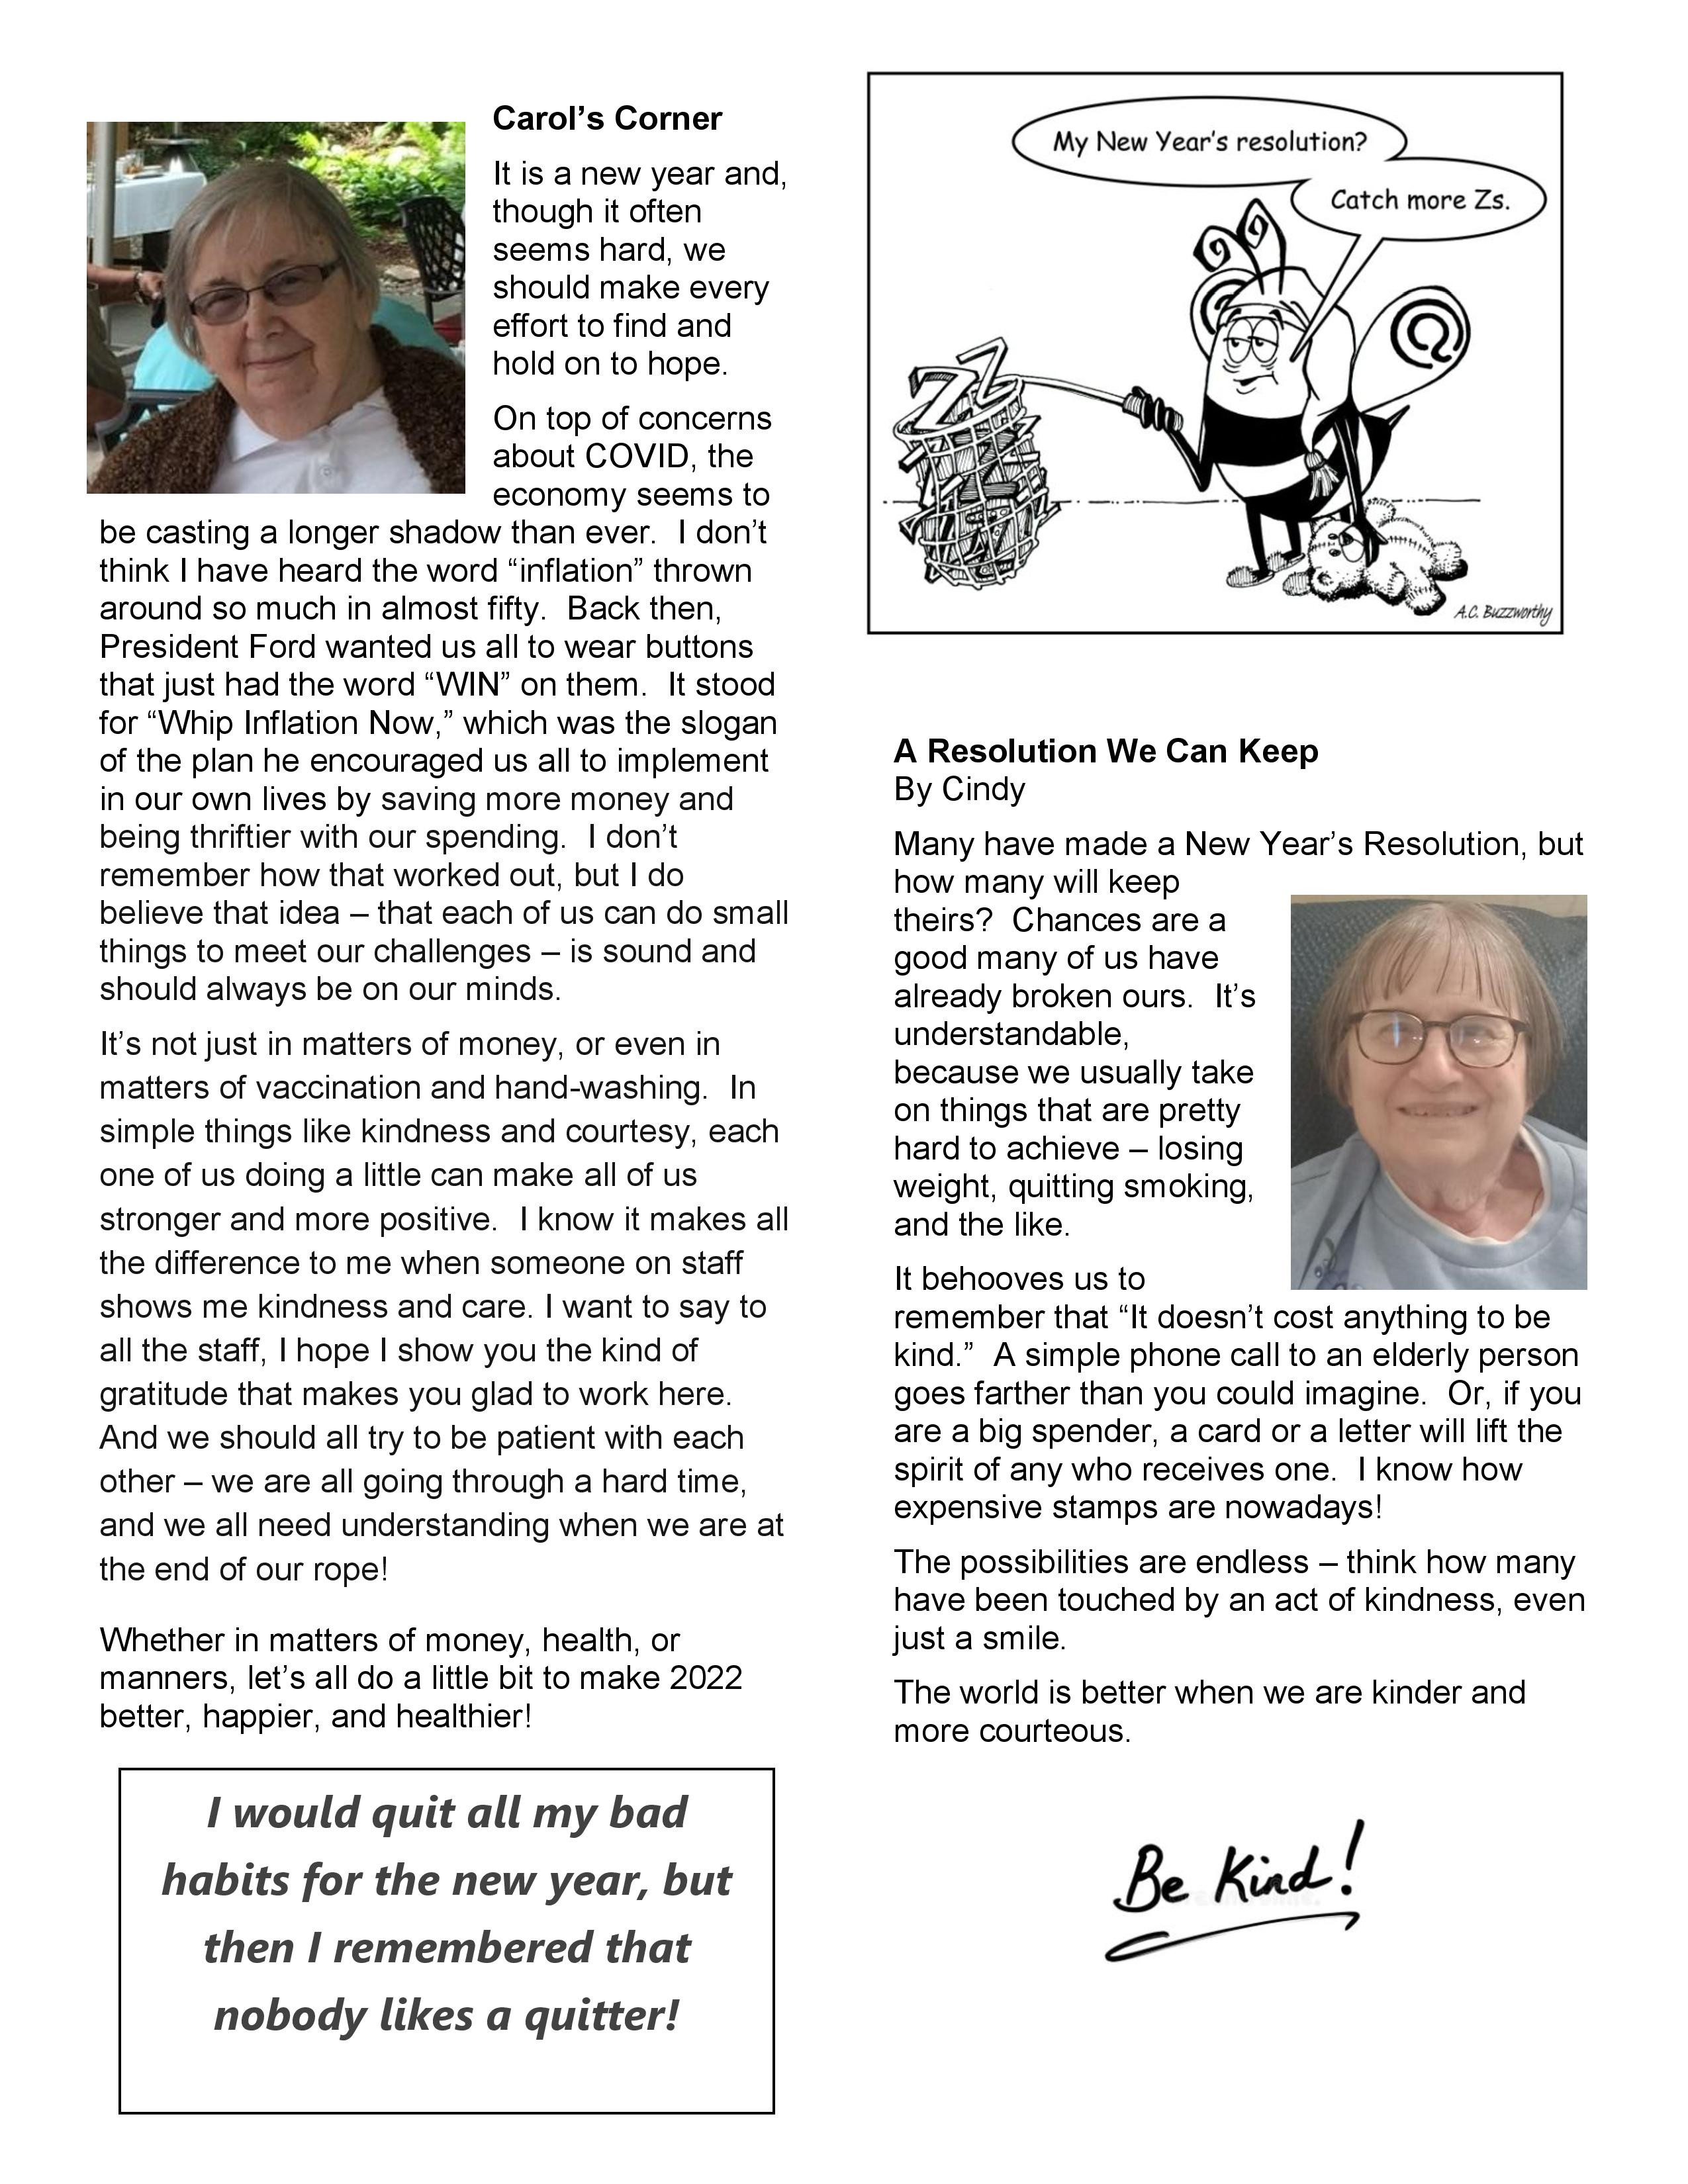 Carol’s Corner
It is a new year and,
though it often
seems hard, we
should make every
effort to find and
hold on to hope.
On top of concerns
about COVID, the
economy seems to
be casting a longer shadow than ever.  I don’t
think I have heard the word “inflation” thrown
around so much in almost fifty.  Back then,
President Ford wanted us all to wear buttons
that just had the word “WIN” on them.  It stood
for “Whip Inflation Now,” which was the slogan
of the plan he encouraged us all to implement
in our own lives by saving more money and
being thriftier with our spending.  I don’t
remember how that worked out, but I do
believe that idea – that each of us can do small
things to meet our challenges – is sound and
should always be on our minds.
It’s not just in matters of money, or even in
matters of vaccination and hand-washing.  In
simple things like kindness and courtesy, each
one of us doing a little can make all of us
stronger and more positive.  I know it makes all
the difference to me when someone on staff
shows me kindness and care. I want to say to
all the staff, I hope I show you the kind of
gratitude that makes you glad to work here.
And we should all try to be patient with each
other – we are all going through a hard time,
and we all need understanding when we are at
the end of our rope!
Whether in matters of money, health, or
manners, let’s all do a little bit to make 2022
better, happier, and healthier!
I would quit all my bad
habits for the new year, but
then I remembered that
nobody likes a quitter!
My New Year’s resolution?
Catch more Zs.
A.C. Buzzworthy
A Resolution We Can Keep
By Cindy
Many have made a New Year’s Resolution, but
how many will keep
theirs?  Chances are a
good many of us have
already broken ours.  It’s
understandable,
because we usually take
on things that are pretty
hard to achieve – losing
weight, quitting smoking,
and the like.
It behooves us to
remember that “It doesn’t cost anything to be
kind.”  A simple phone call to an elderly person
goes farther than you could imagine.  Or, if you
are a big spender, a card or a letter will lift the
spirit of any who receives one.  I know how
expensive stamps are nowadays!
The possibilities are endless – think how many
have been touched by an act of kindness, even
just a smile.
The world is better when we are kinder and
more courteous.
Be Kind!